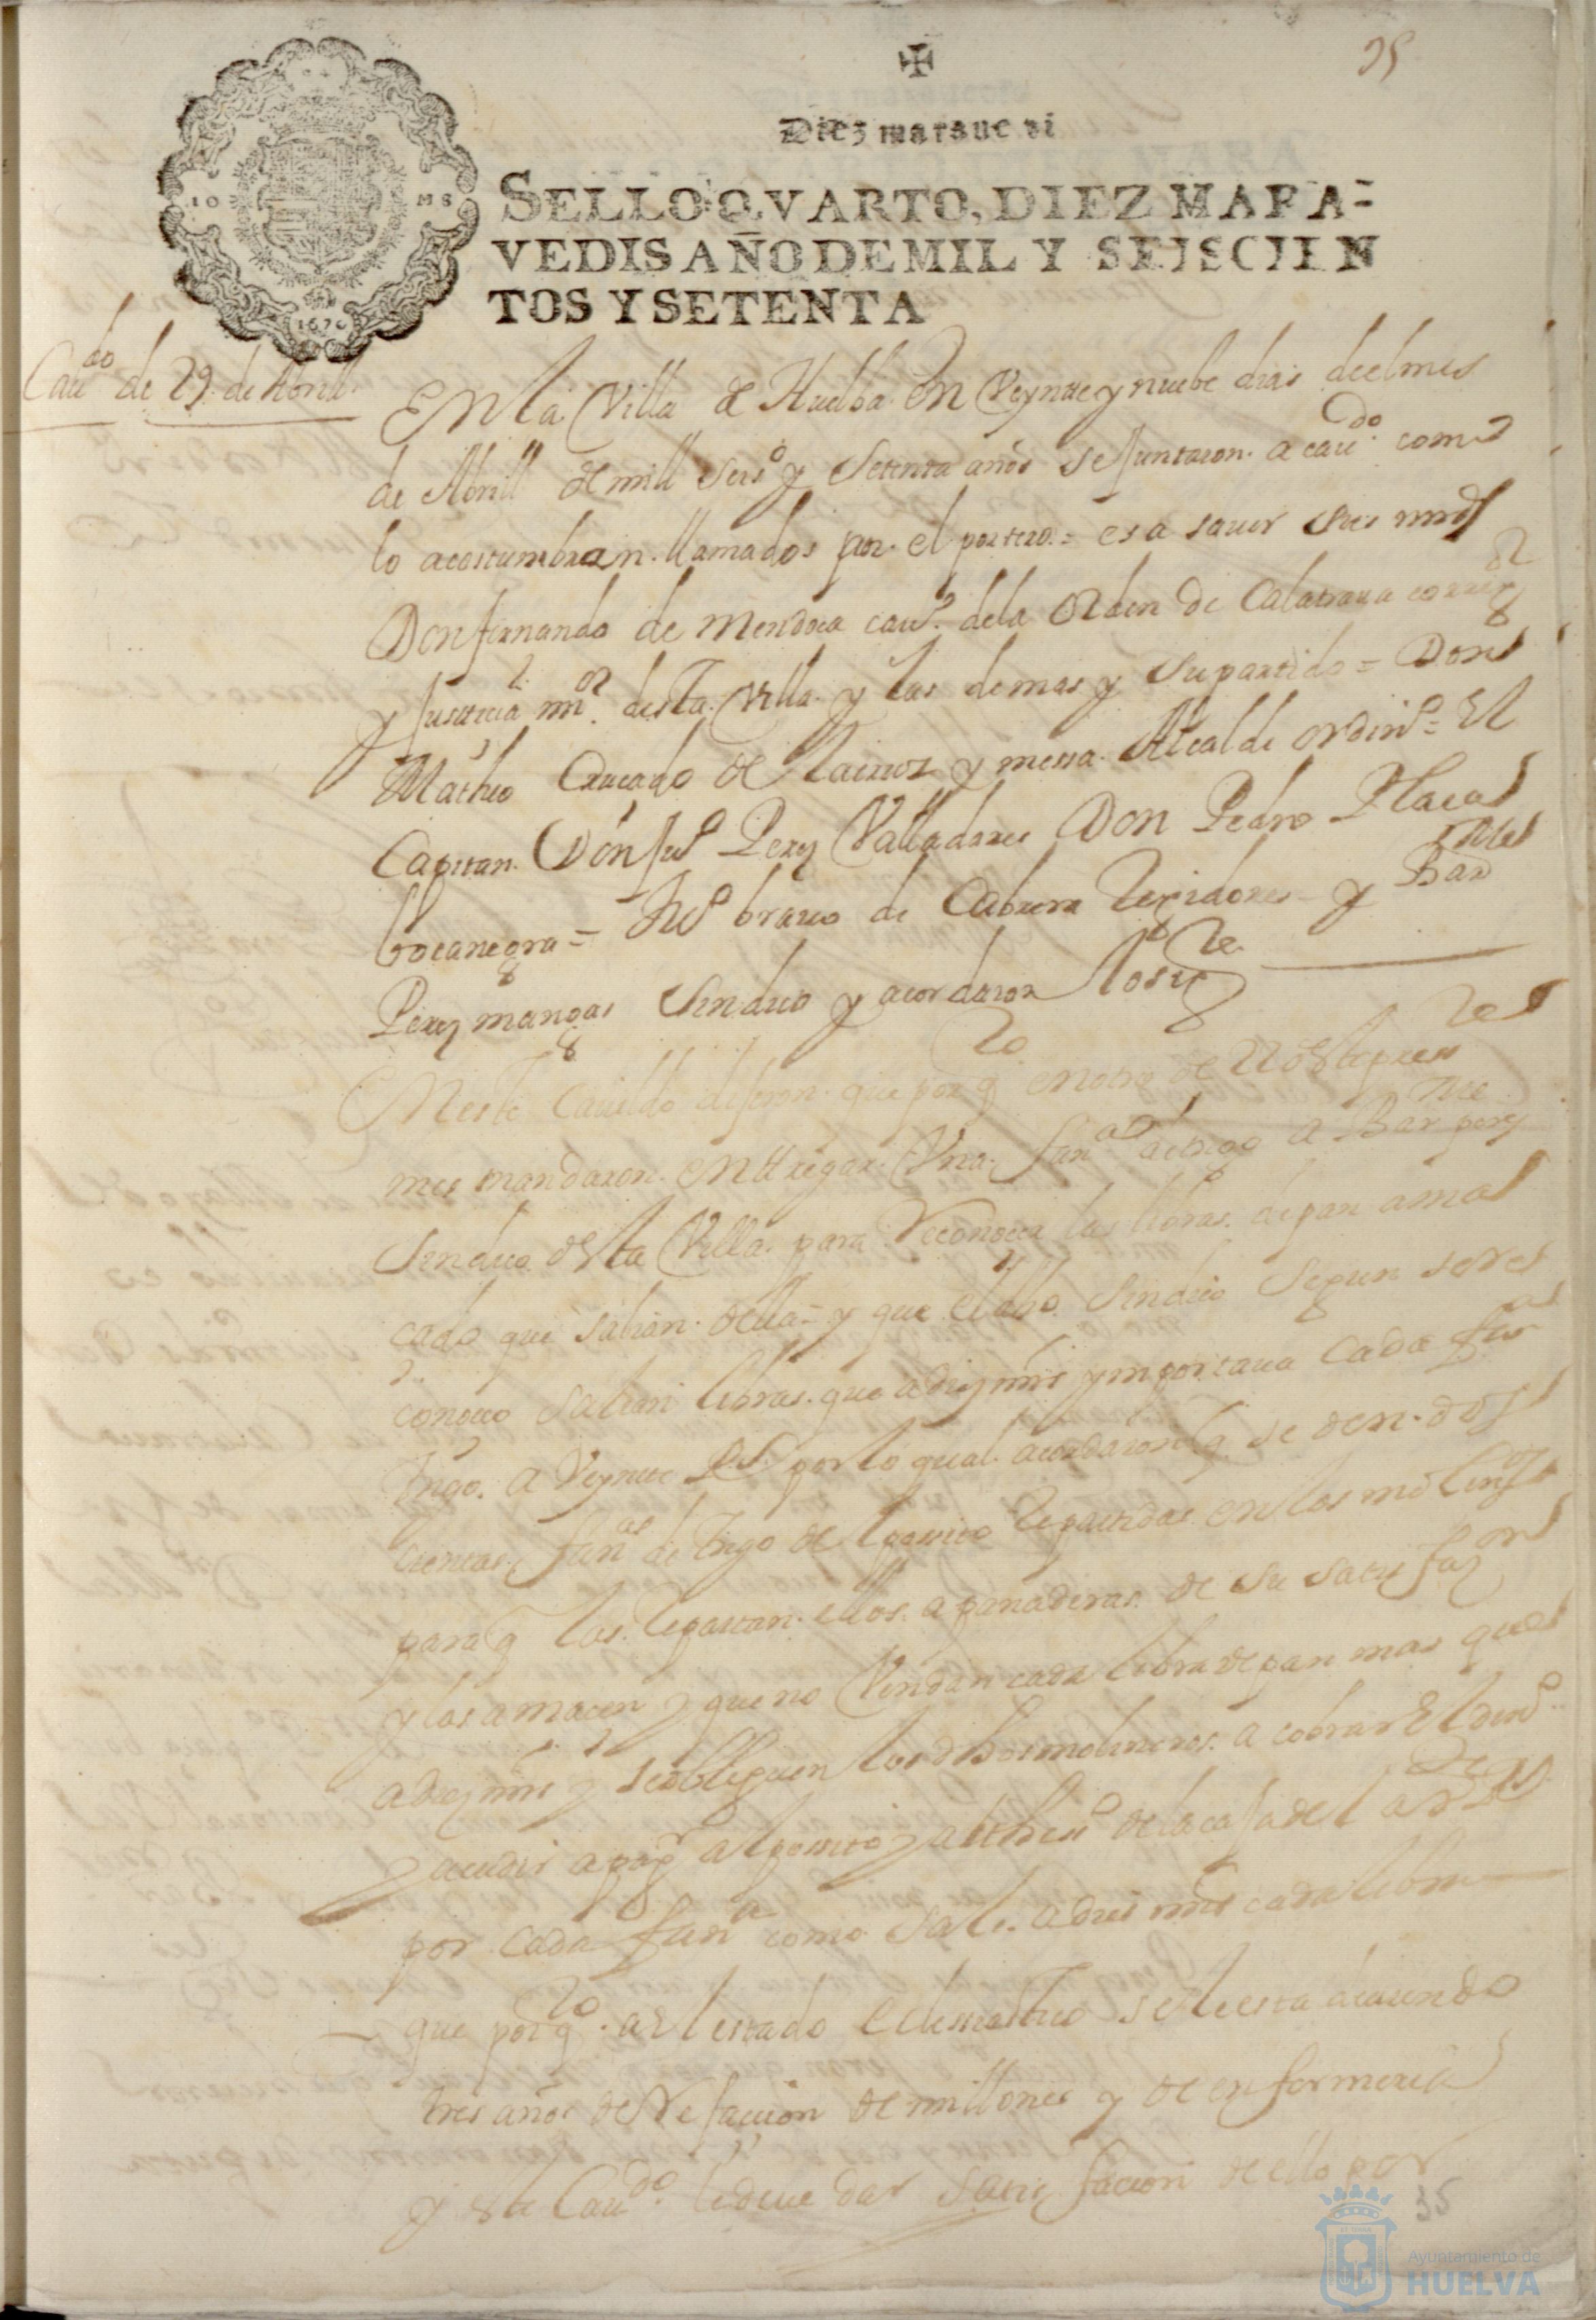 35
Diez maraue di
SELLO QVARTO, DIEZ MARA-
VEDIS AÑO DE MIL Y SEISCIEN
TOS Y SETENTA
1670
Caudo de 29 de Abrill.
En la Villa de Huelba en Veynte y nuebe dias deel mes
de Abrill de mill seiso y setenta años se Juntaron a caudo como
lo acostumbran llamados por el portero = es a sauer sus mrds
Don fernando de Mendoca cauo dela orden de Calatraua corregor
y Justicia mor desta Villa y las demas y su partido = Don
Matheo Quicado de y messa Alcalde ordino = El
Capitan Don Juo Perez Valladares Don Pedro Placa
bocanegra = Juo brauo de Cabrera Rexidores y Barme
Perez mangas sindico y acordaron lo sigte
En este Cauildo dixeron que por qto en otro de 22 deste presente
mes mandaron entregar Vna fana de trigo a Barme perez
sindico desta Villa para Reconocer las libras de pan ama
cado que salian della = y que el dho sindico segun se re
conocio salian libras que a diez mrs ymportaua cada fana
trigo a Veynte Rs por lo qual acordaron q se den dos
cientas fanas de trigo del posito repartidas en los molinos
para q las repartan ellos a panaderas de su satisfazon
y las amacen y que no Vendan cada libra de pan mas que
a diez mrs y se obliguen los dhos molineros a cobrar el dino
y acudir a pagar al posito y al thesro dela casa del
por cada fana como sale a dies mrs cada libra
que por qto al estado eclesiastico se le esta deuiendo
tres años de Refacion de millones y de enfermeria
y este Caudo le deue dar satisfacion de ello por
35
Ayuntamiento de
HUELVA